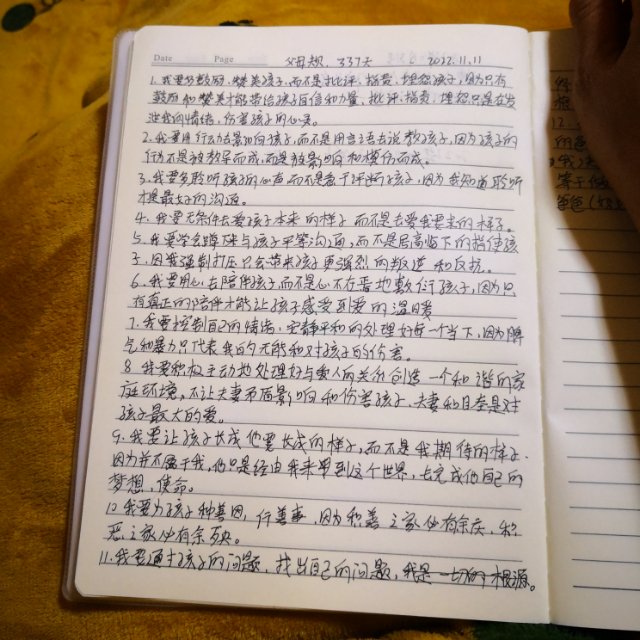 Date Page 父母规. 337天 2022.11.11
1. 我要多鼓励、赞美孩子,而不是批评、指责、埋怨孩子,因为只有
鼓励和赞美才能带给孩子自信和力量,批评、指责、埋怨只是在发
泄我的情绪,伤害孩子的心灵。
2. 我要用行动去影响孩子,而不是用言语去说教孩子,因为孩子的
行为不是被教导而成,而是被影响和模仿而成。
3. 我要多聆听孩子的心声而不是急于评断孩子,因为我知道聆听
才是最好的沟通。
4. 我要无条件去爱孩子本来的样子而不是去爱我要求的样子。
5. 我要学会蹲下来与孩子平等沟通,而不是居高临下的指使孩
子,因为强制打压只会带来孩子更强烈的叛逆和反抗。
6. 我要用心去陪伴孩子而不是心不在焉地敷衍孩子,因为只
有真正的陪伴才能让孩子感受到爱的温暖
7. 我要控制自己的情绪,安静平和的处理好每一个当下,因为脾
气和暴力只代表我的无能和对孩子的伤害。
8. 我要积极主动地处理好与爱人的关系创造一个和谐的家
庭环境,不让夫妻矛盾影响和伤害孩子,夫妻和睦是对
孩子最大的爱。
9. 我要让孩子长成他要长成的样子,而不是我期待的样子.
因为并不属于我,他只是经由我来带到这个世界,去完成他自己的
梦想,使命。
10 我要为孩子种善因,行善事,因为积善之家必有余庆,积
恶之家必有余殃。
11. 我要通过孩子的问题,找出自己的问题,我是一切的根源。
什
根
12.
的
我
等于
爸爸